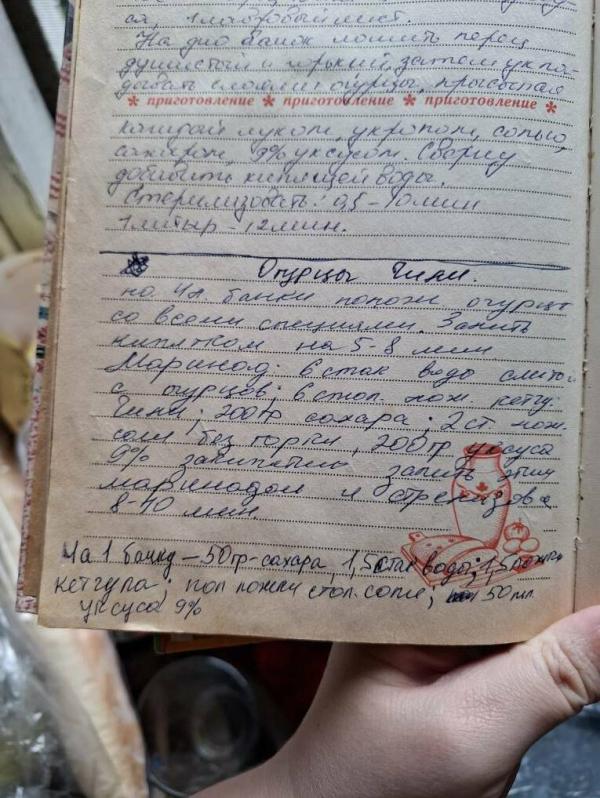 ся, 1 лавровый лист.
На дно банок ложить перец
душистый и горький, затем укла-
дывать слоями огурцы, присыпая
* приготовление * приготовление * приготовление *
луком, укропом, солью,
сахаром, 9% уксусом. Сверху
добавить кипящей воды.
Стерилизовать: 0,5 - 10 мин
1 литыр - 12 мин.
Огурцы Чили.
по 4 л. банки положи огурцы
со всеми специями. Залить
кипятком на 5-8 мин
Маринад: 6 стак водо слито
с огурцов; 6 стол. лож. кетч.
Чили; 200 гр сахара; 2 ст лож.
соли без горки, 200 гр уксуса
9% закипятить залить этим
маринадом и
8-10 мин.
На 1 банку - 50 гр - сахара, 1,5 стак воды; 1,5 ложки
кетчупа; пол ложки стол. соли; 50 мл
уксуса 9%